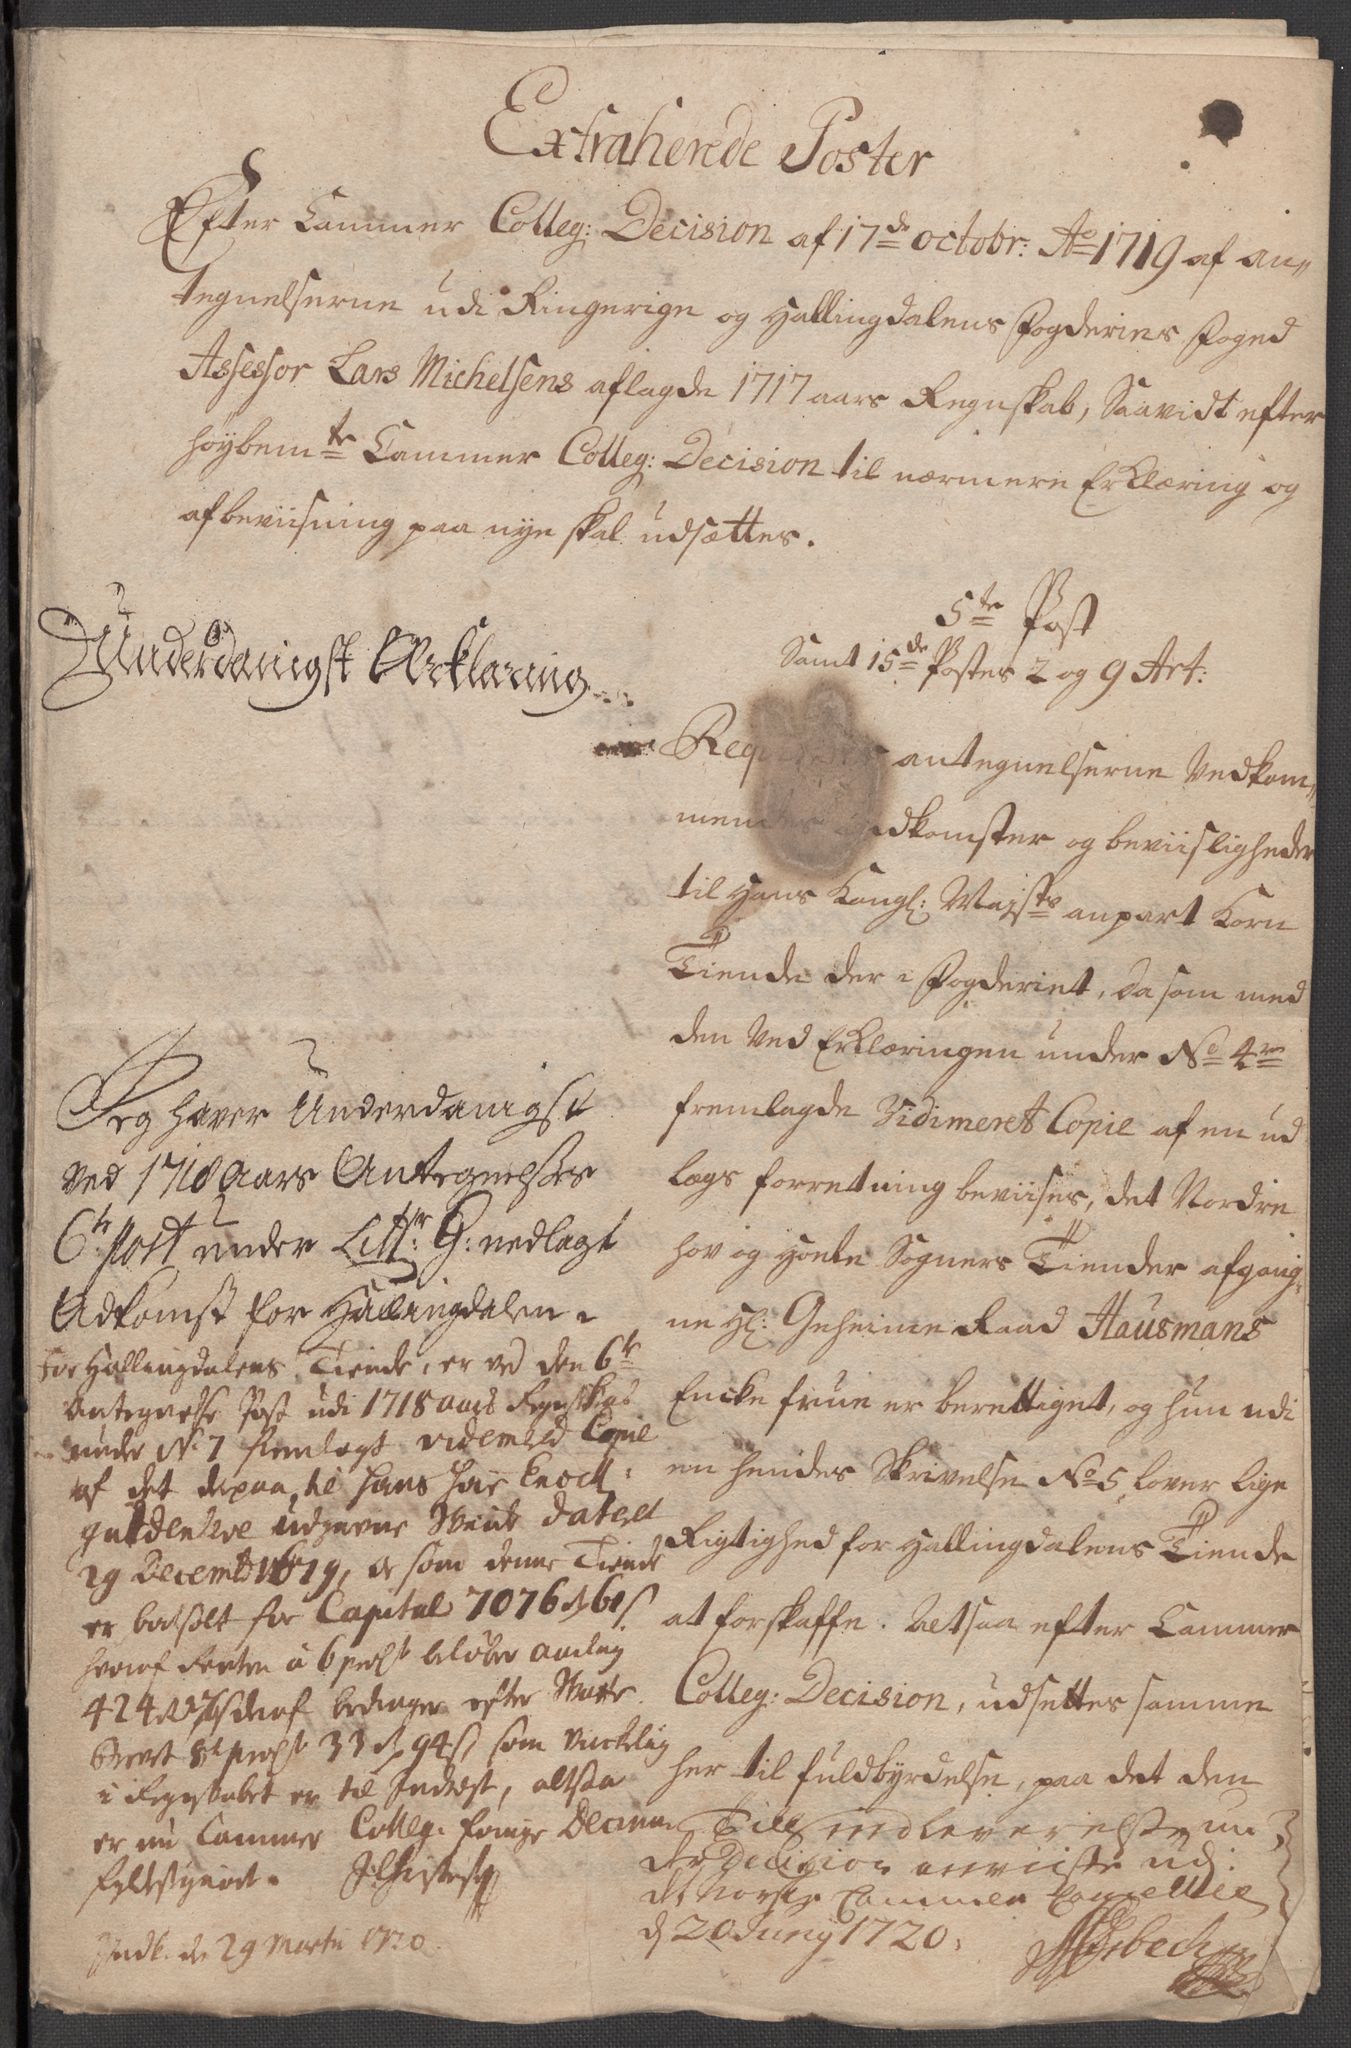 Extraherede Poster
Efter Cammer Colleg: Decision af 17de octobr: Ao 1719 af an„
tegnelserne udi Ringerige og Hallingdalens Fogderies Foged
Assessor Lars Michelsens aflagde 1717 aars Regnskab, Saavidt efter
høybemte Cammer Colleg: Decision til nærmere Erklæring og
afbeviisning paa nye skal udsættes.
Underdanigst Erklæring
5te Post
Samt 15de Postes 2 og 9 Art:
antegnelserne Vedkom„
og beviisligheder
til Hans Kongl: Mayts anpart Korn
Tiende der i Fogderiet, da som med
den Ved Erklæringen under No 4re
fremlagde Vidimeret Copie af en ud
lægs forretning beviises, det Nordre
hov og Hoele Sogners Tiender afgang„
ne Hl: Geheime Raad Hausmans
Encke frue er berettiget, og hun udi
en hendes Skrivelse No 5, lover lige
Rigtighed for Hallingdalens Tiende
at forskaffe. Altsaa efter Cammer
Colleg: Decision, udsettes samme
her til fuldbyrdelse, paa det den
Jeg haver Underdanigst
ved 1718 Aars Antegnelses
6te Post under Littr: G: nedlagt
Adkomst for Hallingdalen
For Hallingdalens Tiende, er ved den 6te
Antegnelse Post udi 1718 aars Regnskab
under No 7 fremlagt videmered Copie
af det derpaa til Hans
udgivne Skiøde dateret
29 Decembr 1679, at som denne Tiende
er bortsolt for Capital 7076
Renten à 6
424
33 94 s som
i Regnskabet er til Indtegt, altsaa
er nu Cammer Colleg:
fyldestgiort.
Indl. d. 29 Martii 1720.
Till
det Norske Cammer Cancellie
d 20 Juny 1720.